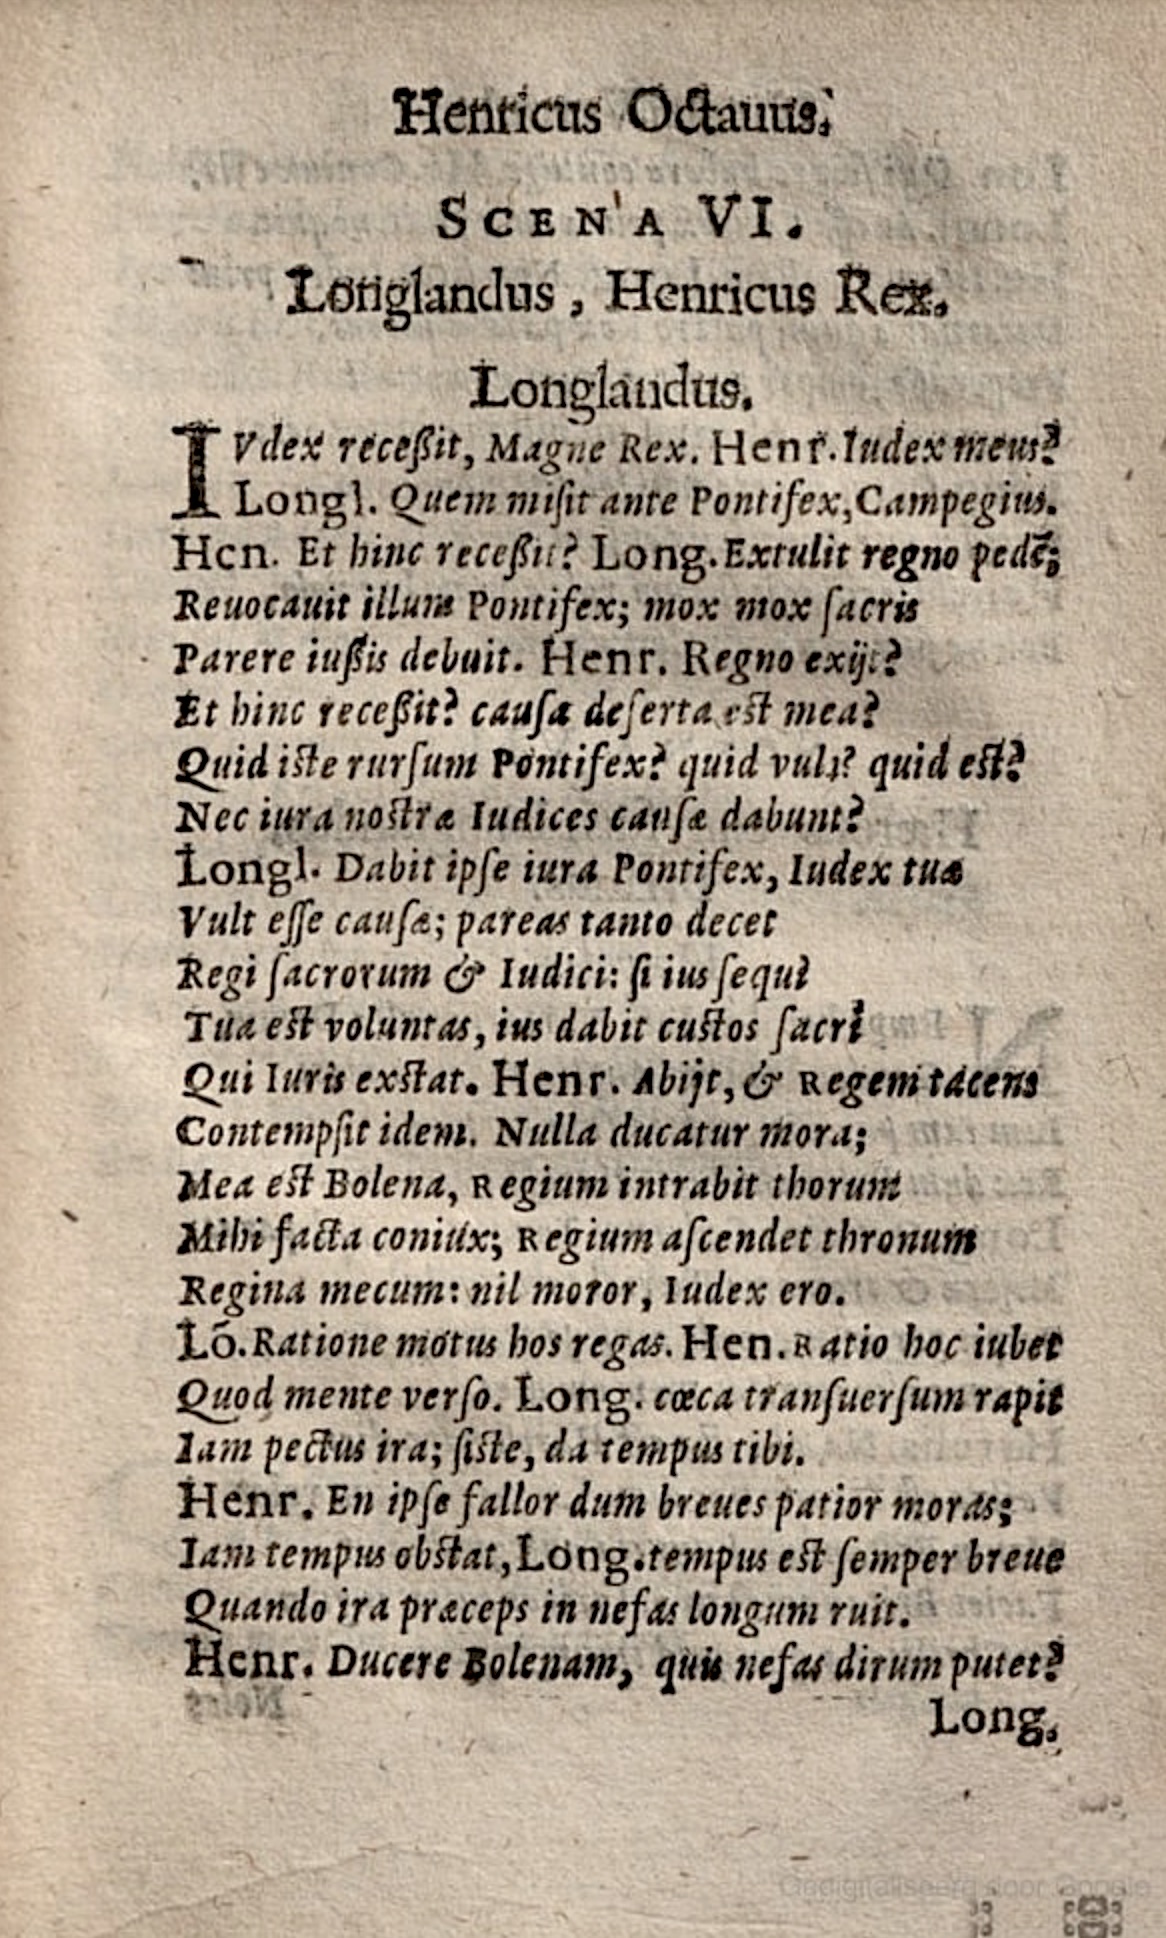 Henricus Octauus.
SCENA VI.
Longlandus, Henricus Rex.
Longlandus.
IVdex receßit, Magne Rex. Henr. Iudex meus?
Longl. Quem miſit ante Pontifex, Campegius.
Hen. Et hinc receßit? Long. Extulit regno pedē;
Reuocauit illum Pontifex; mox mox ſacris
Parere iußis debuit. Henr. Regno exijt?
Et hinc receßit? cauſa deſerta est mea?
Quid iste rurſum Pontifex? quid vult? quid est?
Nec iura nostræ Iudices cauſæ dabunt?
Longl. Dabit ipſe iura Pontifex, Iudex tuæ
Vult eſſe cauſæ; pareas tanto decet
Regi ſacrorum & Iudici: ſi ius ſequi
Tua est voluntas, ius dabit custos ſacri
Qui Iuris exstat. Henr. Abijt, & Regem tacens
Contempſit idem. Nulla ducatur mora;
Mea est Bolena, Regium intrabit thorum
Mihi facta coniux; Regium aſcendet thronum
Regina mecum: nil moror, Iudex ero.
Lō. Ratione motus hos regas. Hen. Ratio hoc iubet
Quod mente verſo. Long. cœca tranſuerſum rapit
Iam pectus ira; ſiste, da tempus tibi.
Henr. En ipſe fallor dum breues patior moras;
Iam tempus obstat, Long. tempus est ſemper breue
Quando ira præceps in nefas longum ruit.
Henr. Ducere Bolenam, quis nefas dirum putet?
Long.
Gedigitaliseerd door Google